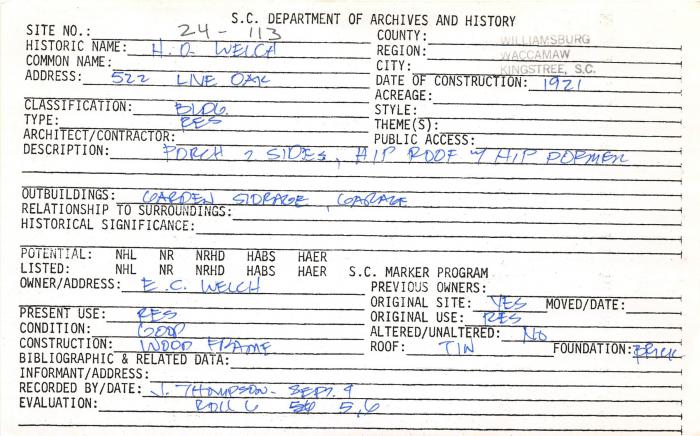 S.C. DEPARTMENT OF ARCHIVES AND HISTORY
SITE NO.: 24-113 COUNTY: WILLIAMSBURG
HISTORIC NAME: H.O. WELCH REGION: WACCAMAW
COMMON NAME: CITY: KINGSTREE, S.C.
ADDRESS: 522 LIVE OAK DATE OF CONSTRUCTION: 1921
ACREAGE:
CLASSIFICATION: BLDG. STYLE:
TYPE: RES THEME(S):
ARCHITECT/CONTRACTOR: PUBLIC ACCESS:
DESCRIPTION: PORCH 2 SIDES, HIP ROOF w/ HIP DORMER
OUTBUILDINGS: GARDEN STORAGE, GARAGE
RELATIONSHIP TO SURROUNDINGS:
HISTORICAL SIGNIFICANCE:
POTENTIAL: NHL NR NRHD HABS HAER
LISTED: NHL NR NRHD HABS HAER S.C. MARKER PROGRAM
OWNER/ADDRESS: E.C. WELCH PREVIOUS OWNERS:
ORIGINAL SITE: YES MOVED/DATE:
PRESENT USE: RES ORIGINAL USE: RES
CONDITION: GOOD ALTERED/UNALTERED: NO
CONSTRUCTION: WOOD FRAME ROOF: TIN FOUNDATION: BRICK
BIBLIOGRAPHIC & RELATED DATA:
INFORMANT/ADDRESS:
RECORDED BY/DATE: J. THOMPSON- SEPT. 9
EVALUATION: ROLL 6 5,6